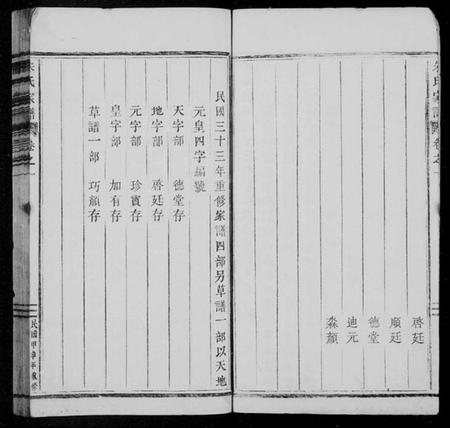 朱氏家譜 卷之一
啓廷
順廷
德堂
廸元
淼顏
民國三十三年重修家譜四部另草譜一部以天地
元皇四字編號
天字部 德堂存
地字部 啓廷存
元字部 珍賓存
皇字部 加有存
草譜一部 巧顏存
氏家譜 卷之一
民國甲申年重修